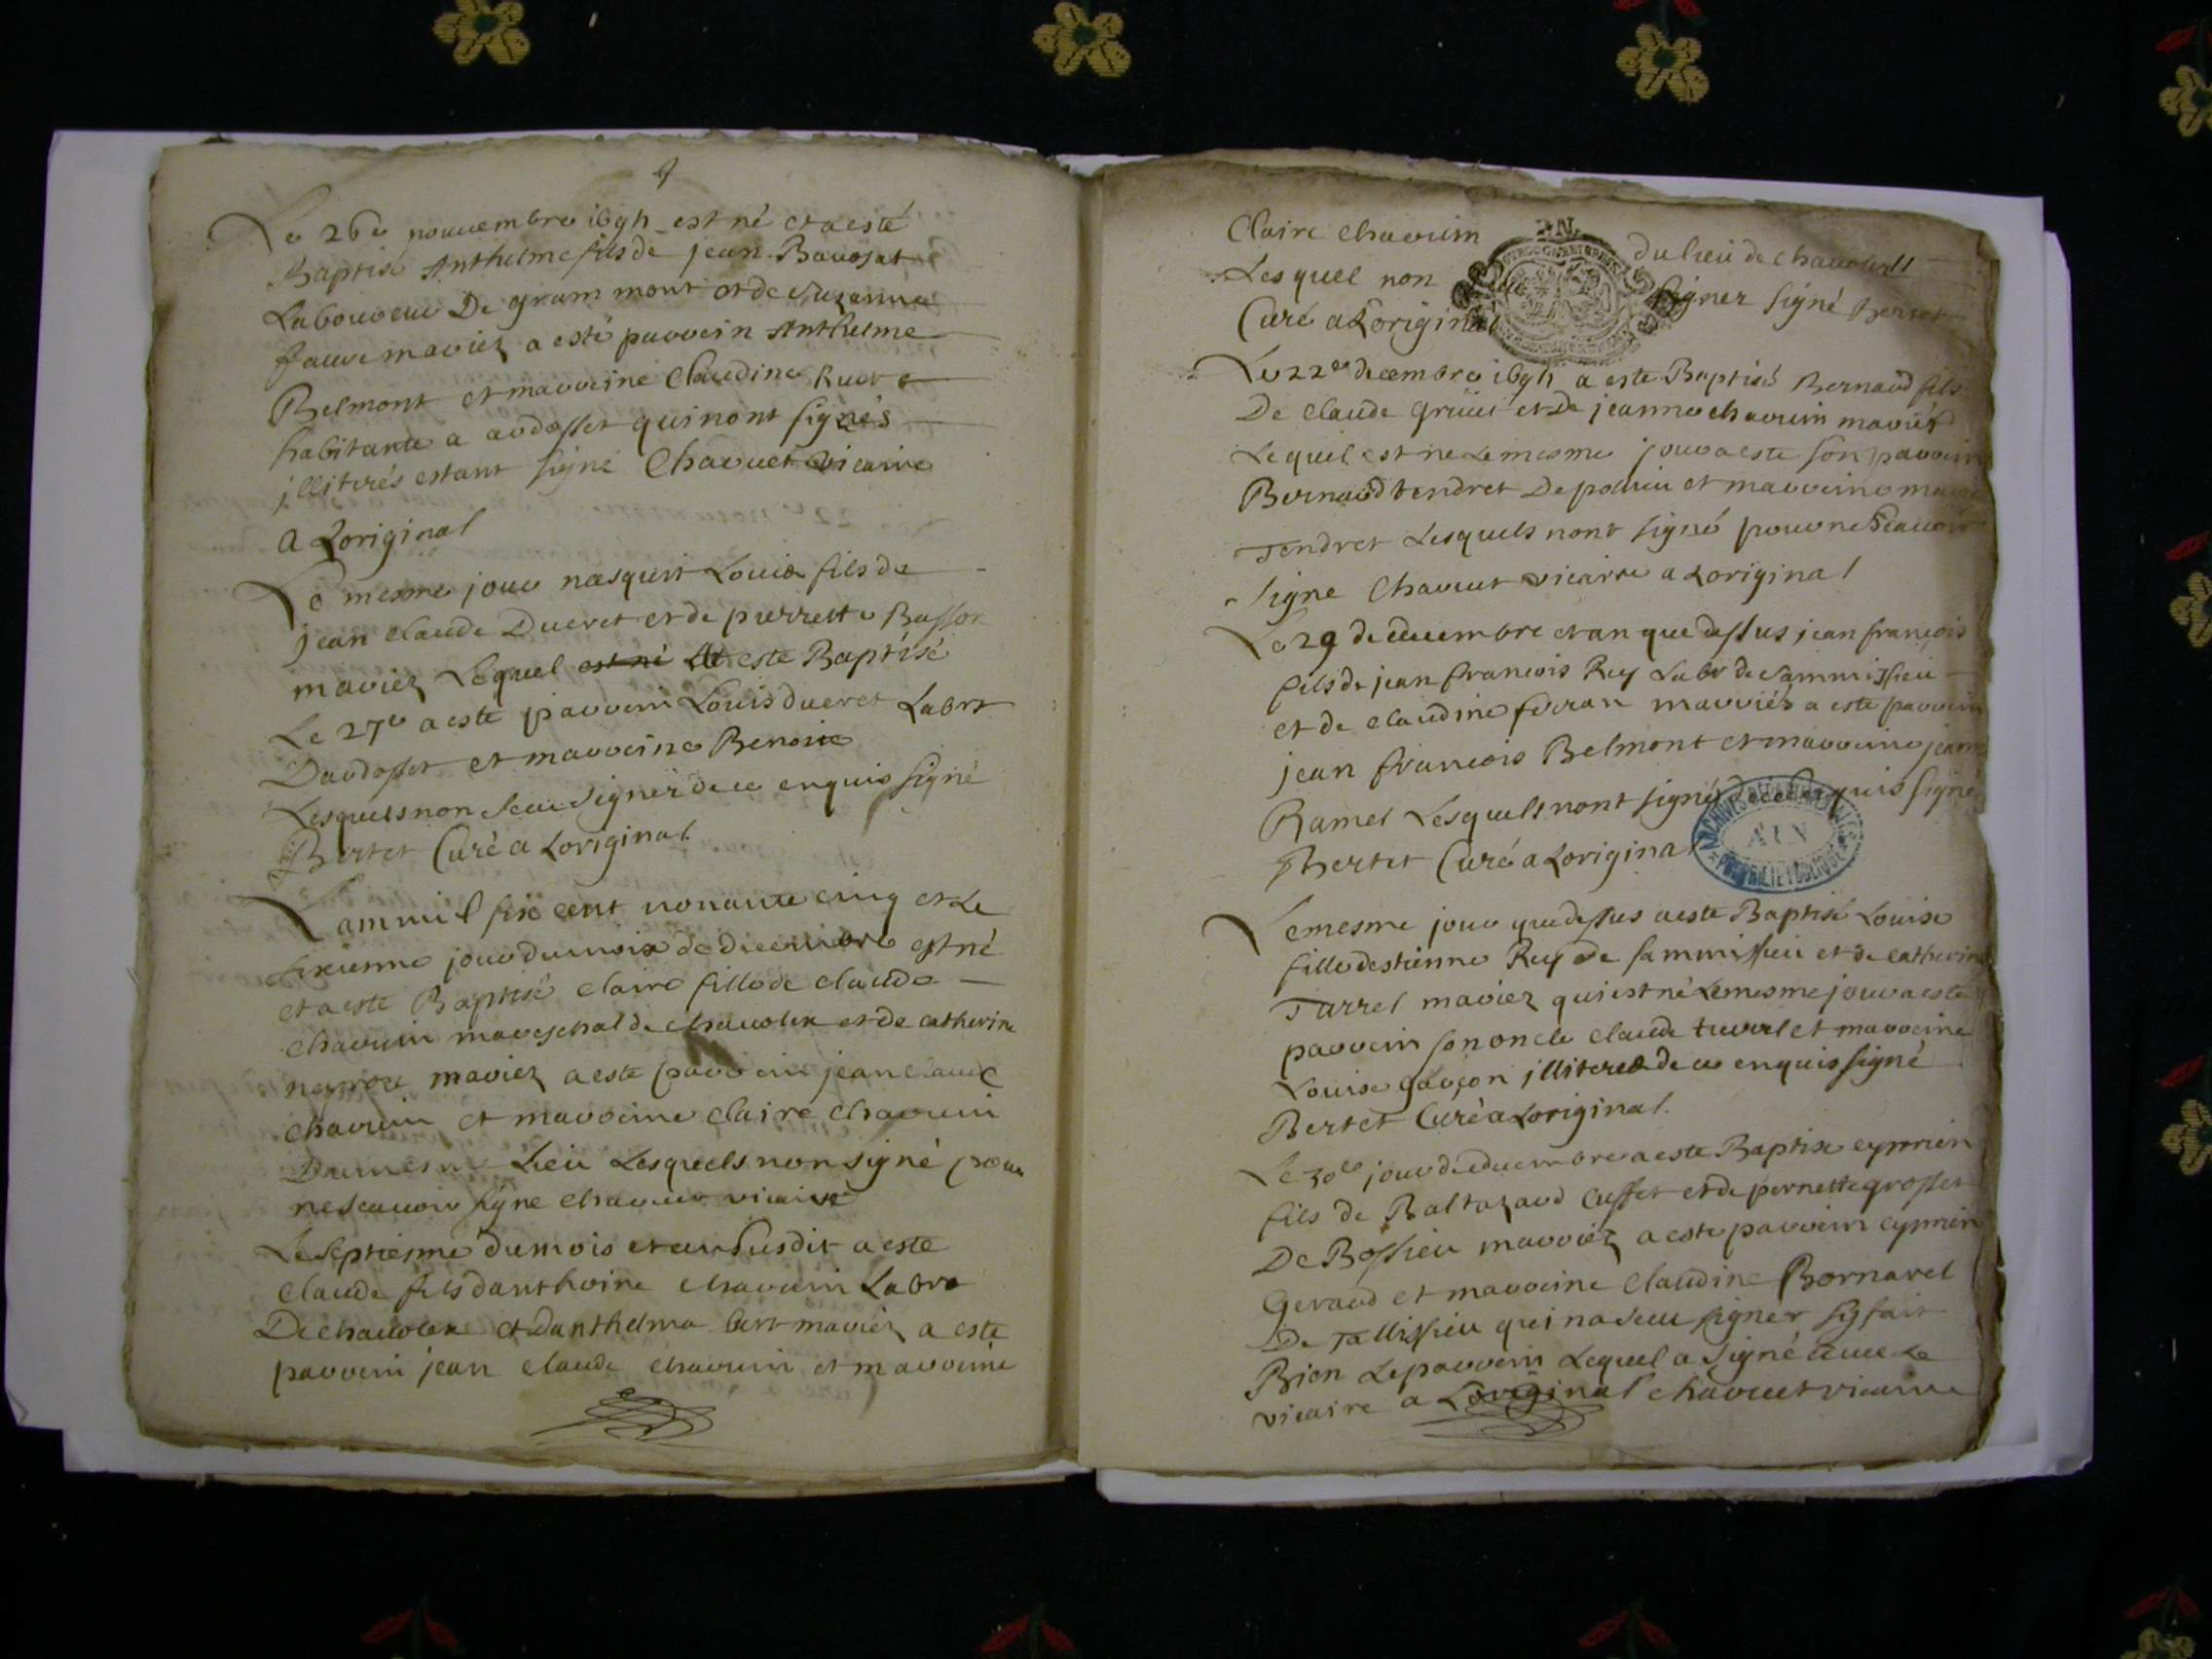 Le 26e nouuembre 1695 est né et a esté
Baptisé Anthelme fils de jean Bauosat
Laboureur De grammont et de Suzanne
faure mariez a esté parrein Anthelme
Belmont et marreine Claudine
habitante a ardosset qui nont signés
jlliterés estant signé Charuet vicaire
A Loriginal
Le mesme jour nasquit Louis fils de
jean Claude Dueret et de pierrette Basson
mariez Lequel est né et a este Baptisé
Le 27e a esté parrein Louis dueret Labrr
Dardosset et marreine Benoite
Lesquels non sceu signer de ce enquis signé
Bertet Curé a Loriginal
Lan mil six cent nonante cinq et Le
sixieme jour du mois de decembre est né
et a este Baptisé Claire fille de Claude
Charuin mareschal de et de catherine
mariez a este parrein jean claude
charuin et marreine Claire charuin
Du mesme Lieu Lesquels non signé pour
ne scauoir signe charuet vicaire
Le Septieme du mois et an susdit a este
Claude fils danthoine charuin Labr
De et danthelma mariez a este
parrein jean Claude charuin et marreine
Claire charuin du lieu de
Lesquel non signer signé Bertet
Curé a Loriginal
Le 22e decembre 1695 a este Baptisé Bernard fils
De Claude et De jeanne charuin mariés
Lequel est ne Le mesme jour a este son parrein
Bernard tendret De et marreine marie
Tendret Lesquels nont signé pour ne scauoir
signe Charuet vicaire a Loriginal
Le 29 decembre et an que dessus jean françois
fils de jean francois Rey Labr de sammissieu
et de claudine mariés a este parrein
jean francois Belmont et marreine jeanne
Ramel Lesquels nont signé de ce enquis signé
Bertet Curé a Loriginal
ARCHIVES DEPARTEMENTALES
AIN
Le mesme jour que dessus a este Baptisé Louise
fille destienne Rey de sammissieu et de catherine
Tarrel mariez qui est né Le mesme jour a este
parrein son oncle Claude et marreine
Louise garçon jlliteres de ce enquis signé
Bertet Curé a Loriginal.
Le 30e jour decembre a este Baptise cyprien
fils de Baltazard Cusset et de pernette grosset
De Bossieu mariez a este parrein cyprien
Geraud et marreine Claudine Bornarel
De Tallissieu qui na sceu signer sy fait
Bien Le parrein Lequel a signé auec Le
vicaire a Loriginal charuet vicaire